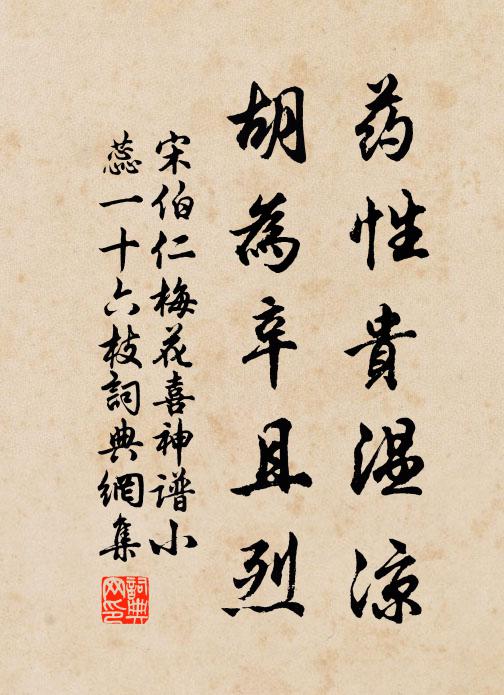 药性貴温凉
胡為辛且烈
宋伯仁梅花喜神谱小
蕊一十六枝詞典網集
詞典网印